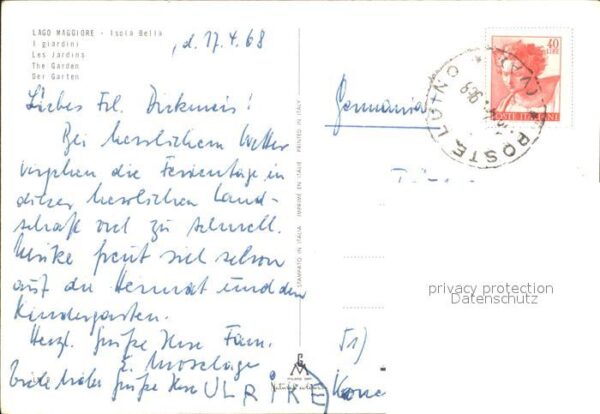 LAGO MAGGIORE - Isola Bella
I giardini
Les Jardins
The Garden
Der Garten
, d. 17.4.68
Liebes Frl. Dirkmeis!
Bei herrlichem Wetter
vergehen die Ferientage in
dieser herrlichen Land-
schaft viel zu schnell.
Ulrike freut sich schon
auf die Heimat und den
Kindergarten.
Herzl. Grüße Ihre Fam.
E. Moselage
Grüße Ihre ULRIKE
STAMPATO IN ITALIA IMPRIMÉ EN ITALIE PRINTED IN ITALY
Germania
40
LIRE
POSTE ITALIANE
POSTE LUINO
privacy protection
Datenschutz
51)